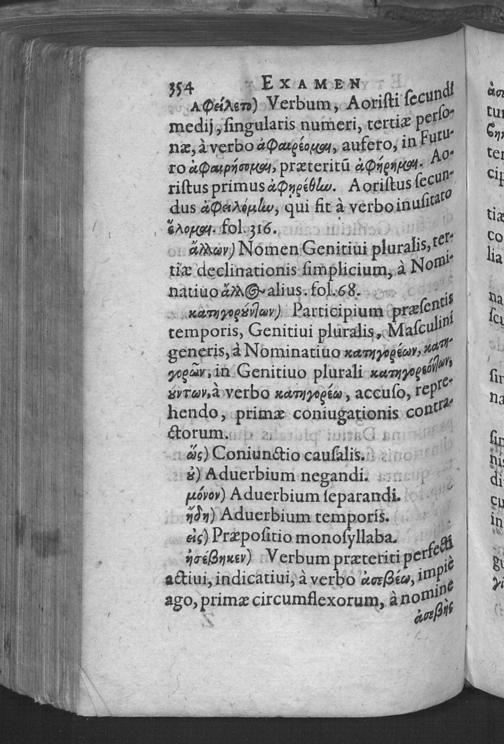 354 EXAMEN
ἀφείλετο) Verbum, Aoristi secundi
medij, singularis numeri, tertiæ perso-
næ, à verbo ἀφαιρέομαι, aufero, in Futu-
ro ἀφαιρήσομαι, præteritũ ἀφήρημαι. Ao-
ristus primus ἀφῃρέθην. Aoristus secun-
dus ἀφειλόμην, qui fit à verbo inusitato
ἕλομαι. fol. 316.
ἄλλων) Nomen Genitiui pluralis, ter-
tiæ declinationis simplicium, à Nomi-
natiuo ἄλλος alius. fol. 68.
κατηγορούντων) Participium præsentis
temporis, Genitiui pluralis, Masculini
generis, à Nominatiuo κατηγορέων, κατη-
γορῶν, in Genitiuo plurali κατηγορεόντων,
ούντων, à verbo κατηγορέω, accuso, repre-
hendo, primæ coniugationis contra-
ctorum.
ὡς) Coniunctio causalis.
οὐ) Aduerbium negandi.
μόνον) Aduerbium separandi.
ἤδη) Aduerbium temporis.
εἰς) Præpositio monosyllaba.
ἠσέβηκεν) Verbum præteriti perfecti
actiui, indicatiui, à verbo ἀσεβέω, impiè
ago, primæ circumflexorum, à nomine
ἀσεβὴς